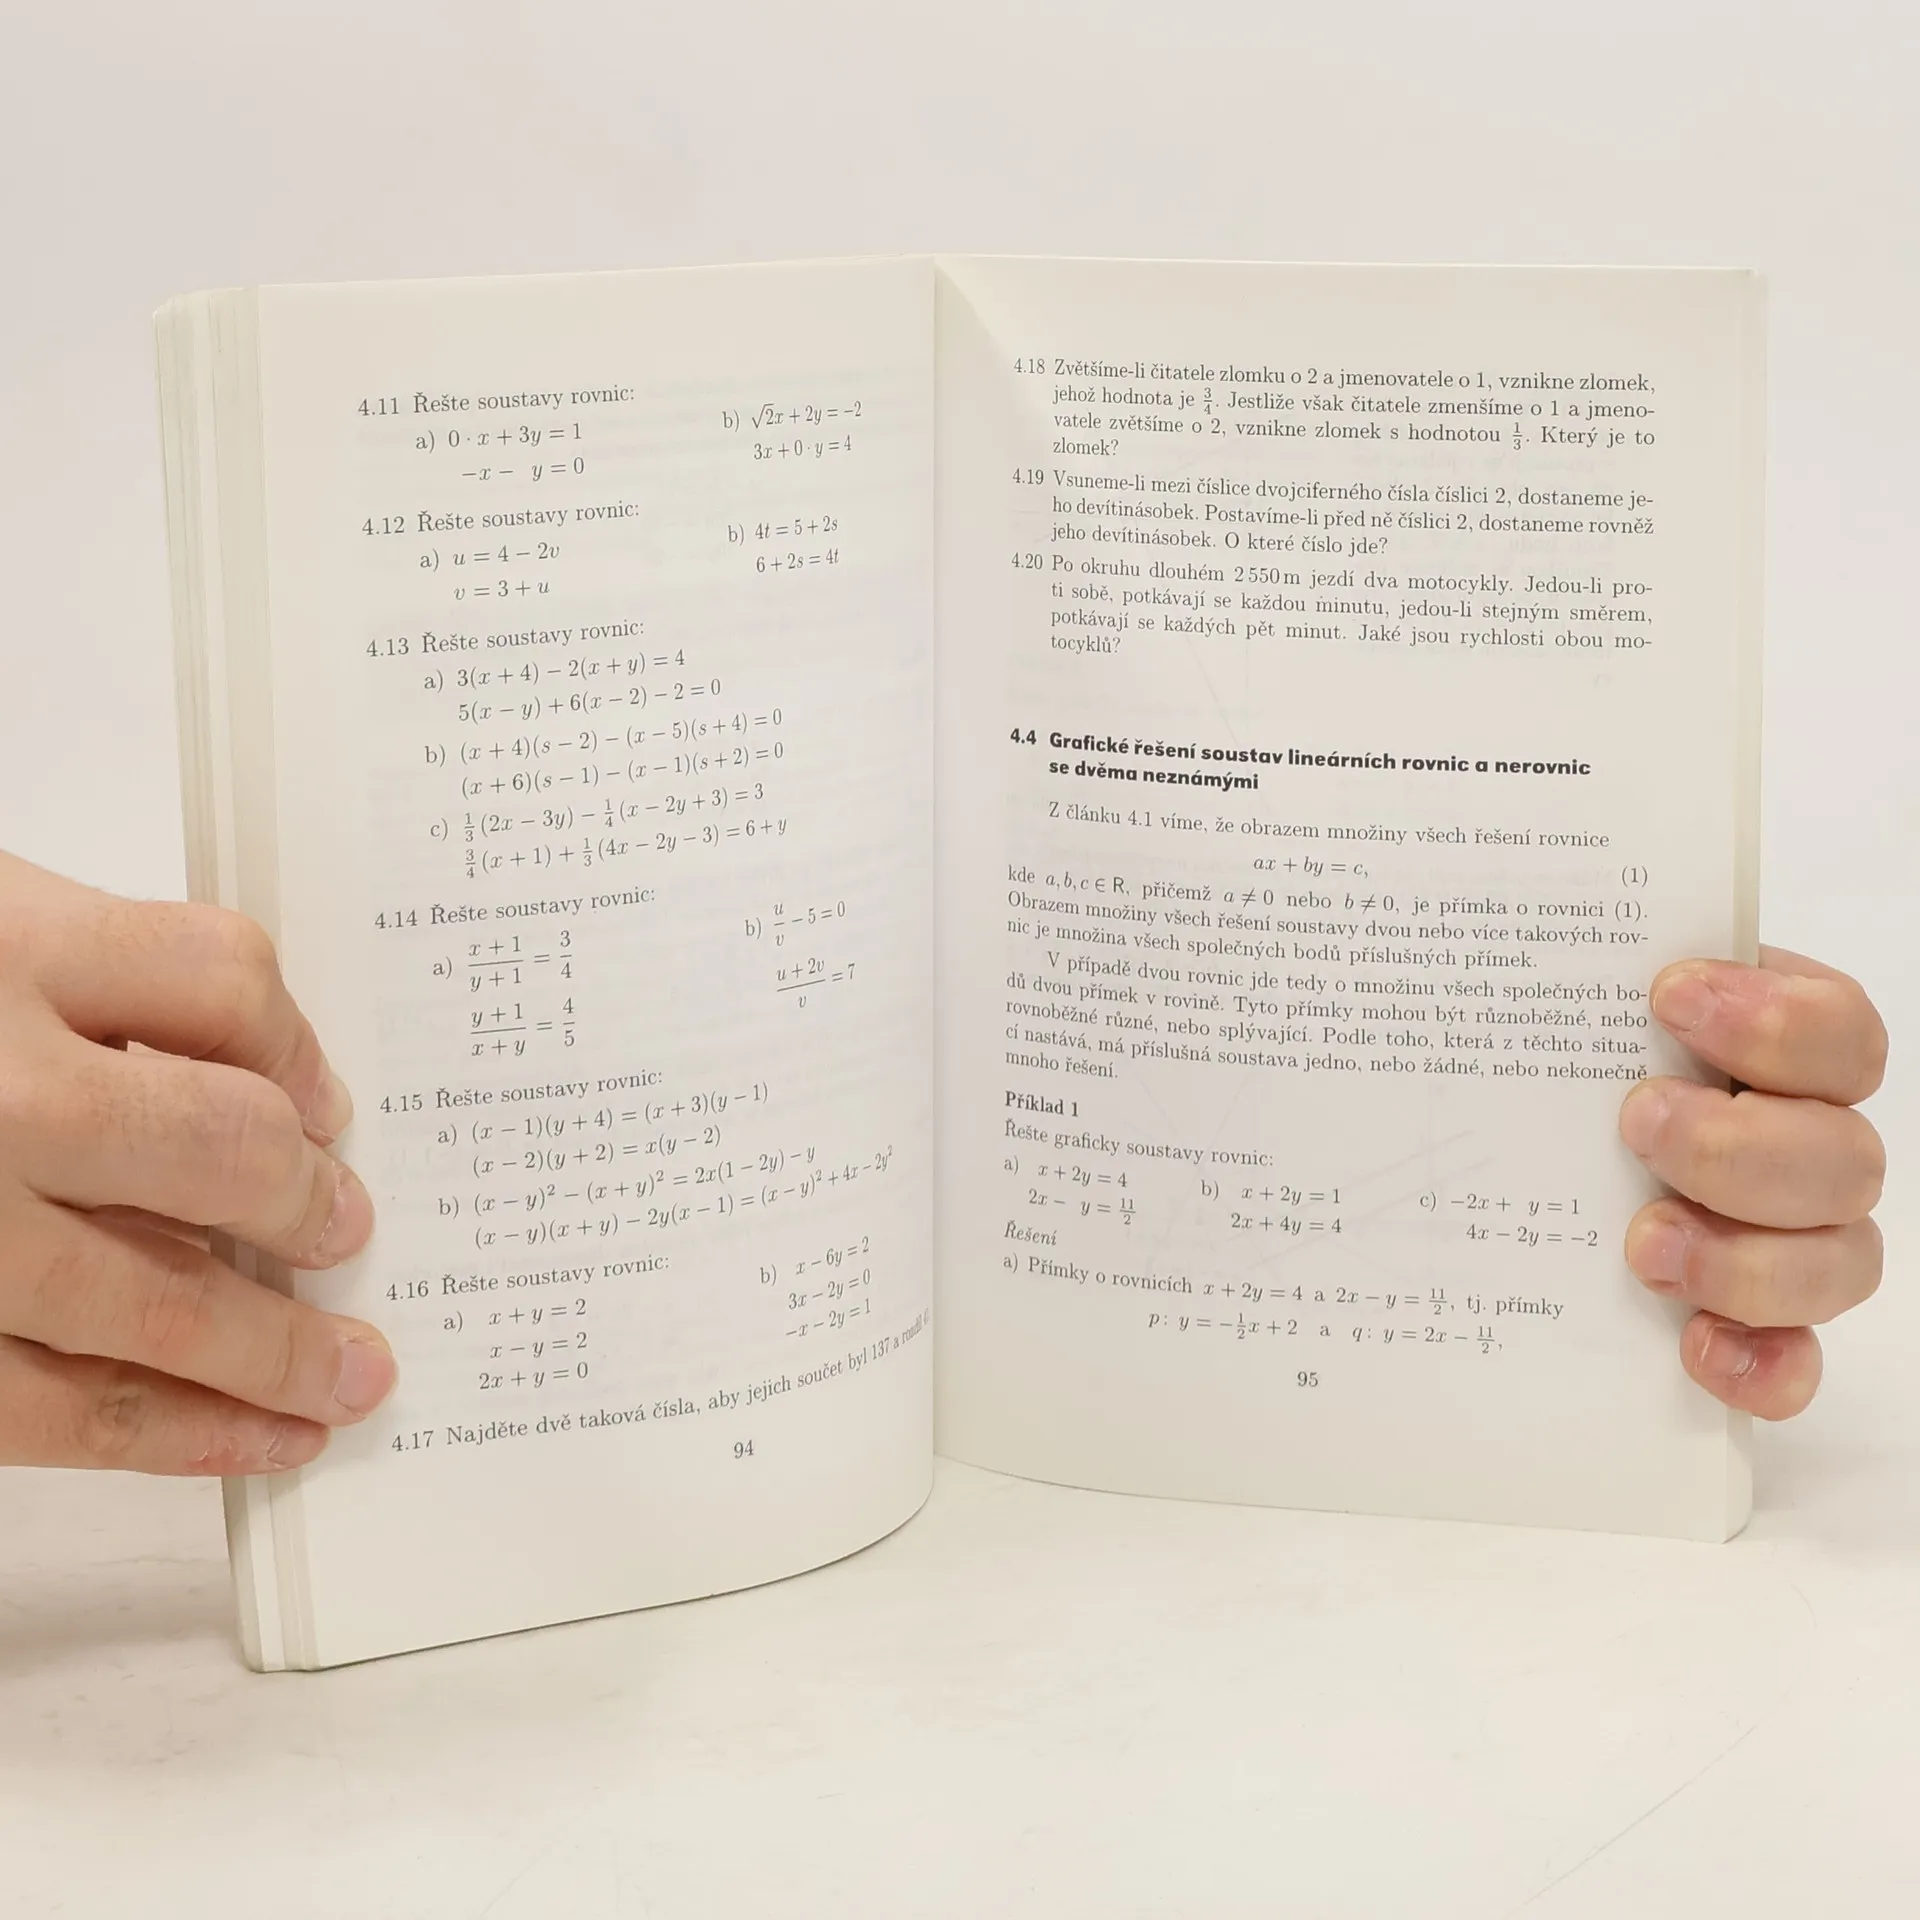 4.11 Řešte soustavy rovnic:
a) 0 · x + 3y = 1
−x − y = 0
b) √2x + 2y = −2
3x + 0 · y = 4
4.12 Řešte soustavy rovnic:
a) u = 4 − 2v
v = 3 + u
b) 4t = 5 + 2s
6 + 2s = 4t
4.13 Řešte soustavy rovnic:
a) 3(x + 4) − 2(x + y) = 4
5(x − y) + 6(x − 2) − 2 = 0
b) (x + 4)(s − 2) − (x − 5)(s + 4) = 0
(x + 6)(s − 1) − (x − 1)(s + 2) = 0
c) 1/3 (2x − 3y) − 1/4 (x − 2y + 3) = 3
3/4 (x + 1) + 1/3 (4x − 2y − 3) = 6 + y
4.14 Řešte soustavy rovnic:
a) (x + 1)/(y + 1) = 3/4
(y + 1)/(x + y) = 4/5
b) u/v − 5 = 0
(u + 2v)/v = 7
4.15 Řešte soustavy rovnic:
a) (x − 1)(y + 4) = (x + 3)(y − 1)
(x − 2)(y + 2) = x(y − 2)
b) (x − y)² − (x + y)² = 2x(1 − 2y) − y
(x − y)(x + y) − 2y(x − 1) = (x − y)² + 4x − 2y²
4.16 Řešte soustavy rovnic:
a) x + y = 2
x − y = 2
2x + y = 0
b) x − 6y = 2
3x − 2y = 0
−x − 2y = 1
4.17 Najděte dvě taková čísla, aby jejich součet byl 137 a rozdíl
94
4.18 Zvětšíme-li čitatele zlomku o 2 a jmenovatele o 1, vznikne zlomek,
jehož hodnota je 3/4. Jestliže však čitatele zmenšíme o 1 a jmeno-
vatele zvětšíme o 2, vznikne zlomek s hodnotou 1/3. Který je to
zlomek?
4.19 Vsuneme-li mezi číslice dvojciferného čísla číslici 2, dostaneme je-
ho devítinásobek. Postavíme-li před ně číslici 2, dostaneme rovněž
jeho devítinásobek. O které číslo jde?
4.20 Po okruhu dlouhém 2 550 m jezdí dva motocykly. Jedou-li pro-
ti sobě, potkávají se každou minutu, jedou-li stejným směrem,
potkávají se každých pět minut. Jaké jsou rychlosti obou mo-
tocyklů?
4.4 Grafické řešení soustav lineárních rovnic a nerovnic
se dvěma neznámými
Z článku 4.1 víme, že obrazem množiny všech řešení rovnice
ax + by = c, (1)
kde a, b, c ∈ R, přičemž a ≠ 0 nebo b ≠ 0, je přímka o rovnici (1).
Obrazem množiny všech řešení soustavy dvou nebo více takových rov-
nic je množina všech společných bodů příslušných přímek.
V případě dvou rovnic jde tedy o množinu všech společných bo-
dů dvou přímek v rovině. Tyto přímky mohou být různoběžné, nebo
rovnoběžné různé, nebo splývající. Podle toho, která z těchto situa-
cí nastává, má příslušná soustava jedno, nebo žádné, nebo nekonečně
mnoho řešení.
Příklad 1
Řešte graficky soustavy rovnic:
a) x + 2y = 4
2x − y = 11/2
b) x + 2y = 1
2x + 4y = 4
c) −2x + y = 1
4x − 2y = −2
Řešení
a) Přímky o rovnicích x + 2y = 4 a 2x − y = 11/2, tj. přímky
p: y = −1/2x + 2 a q: y = 2x − 11/2,
95